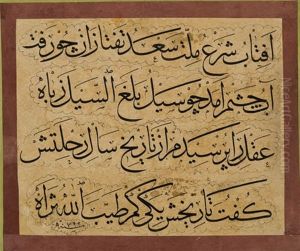 افتاب شرع ملت سعد تفتازان چو رفت
اب چشم امد چو سیل بلغ السیل زباه
عقل را پرسیدم از تاریخ سال رحلتش
کفت تاریخش یکی کم طیب الله ثراه